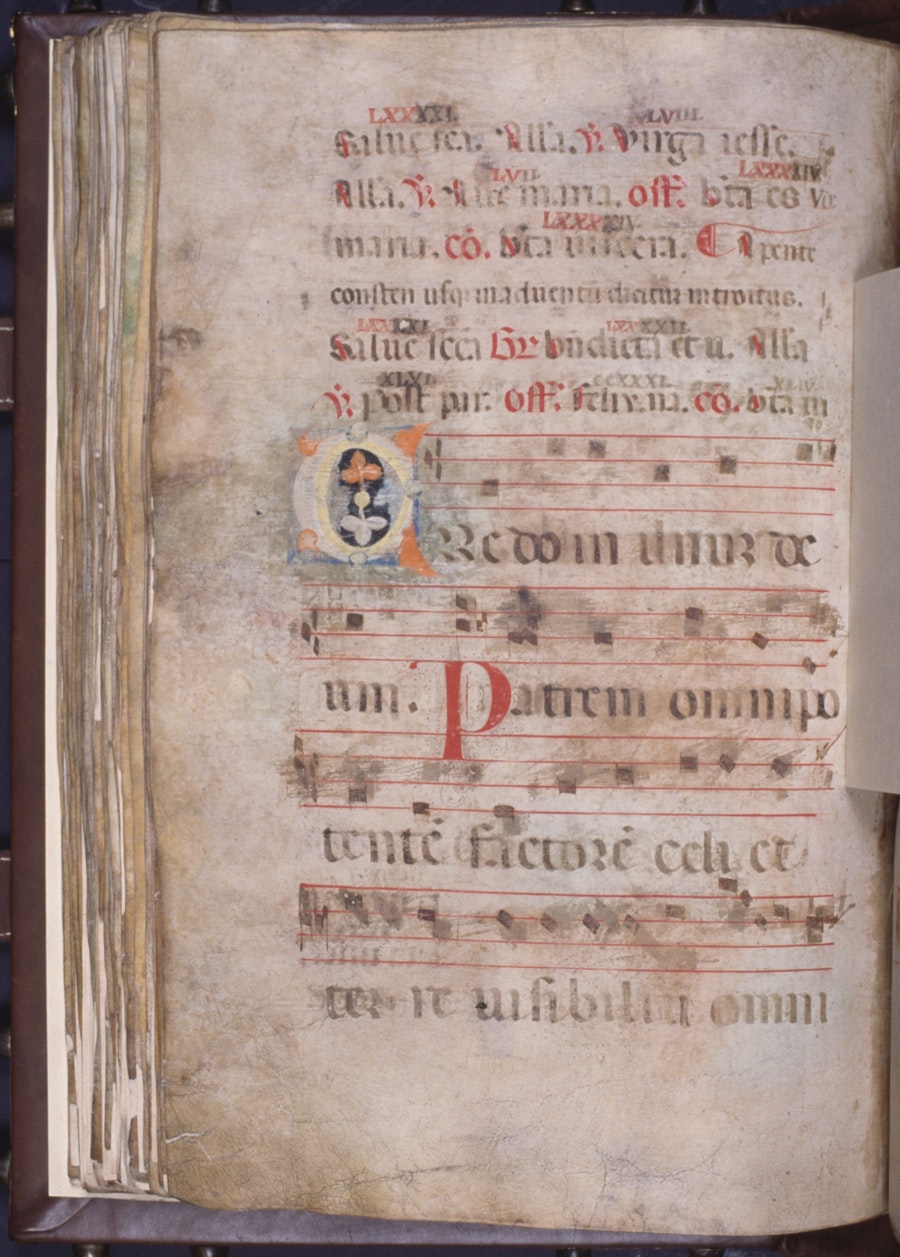 LXXXXI. LVIII.
Salue sca. Alla. ℣. Virga iesse.
LVII. LXXXXIV.
Alla. ℣. Aue maria. off. bta es Vir
LXXXXIV.
maria. cō. bta uiscera. A pente
costen usq; in aduentū dicitur introitus.
LXXXXI. LXXXXII.
Salue sca Gr bndicta et u. Alla
XLVI. CCXXXI. XLIV.
℣. post par. off. felix. na. cō. bta
REdo in unuz de
um. Patrem omnipo
tentē factorē celi et
ter re uisibiliū omni